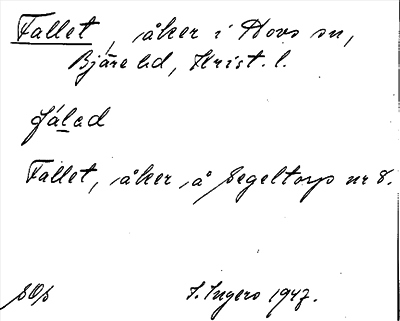 Fallet, åker i Hovs sn,
Bjäre hd, Krist. l.
Fallet, åker å Segeltorp nr 8.
S. Ingers 1947.